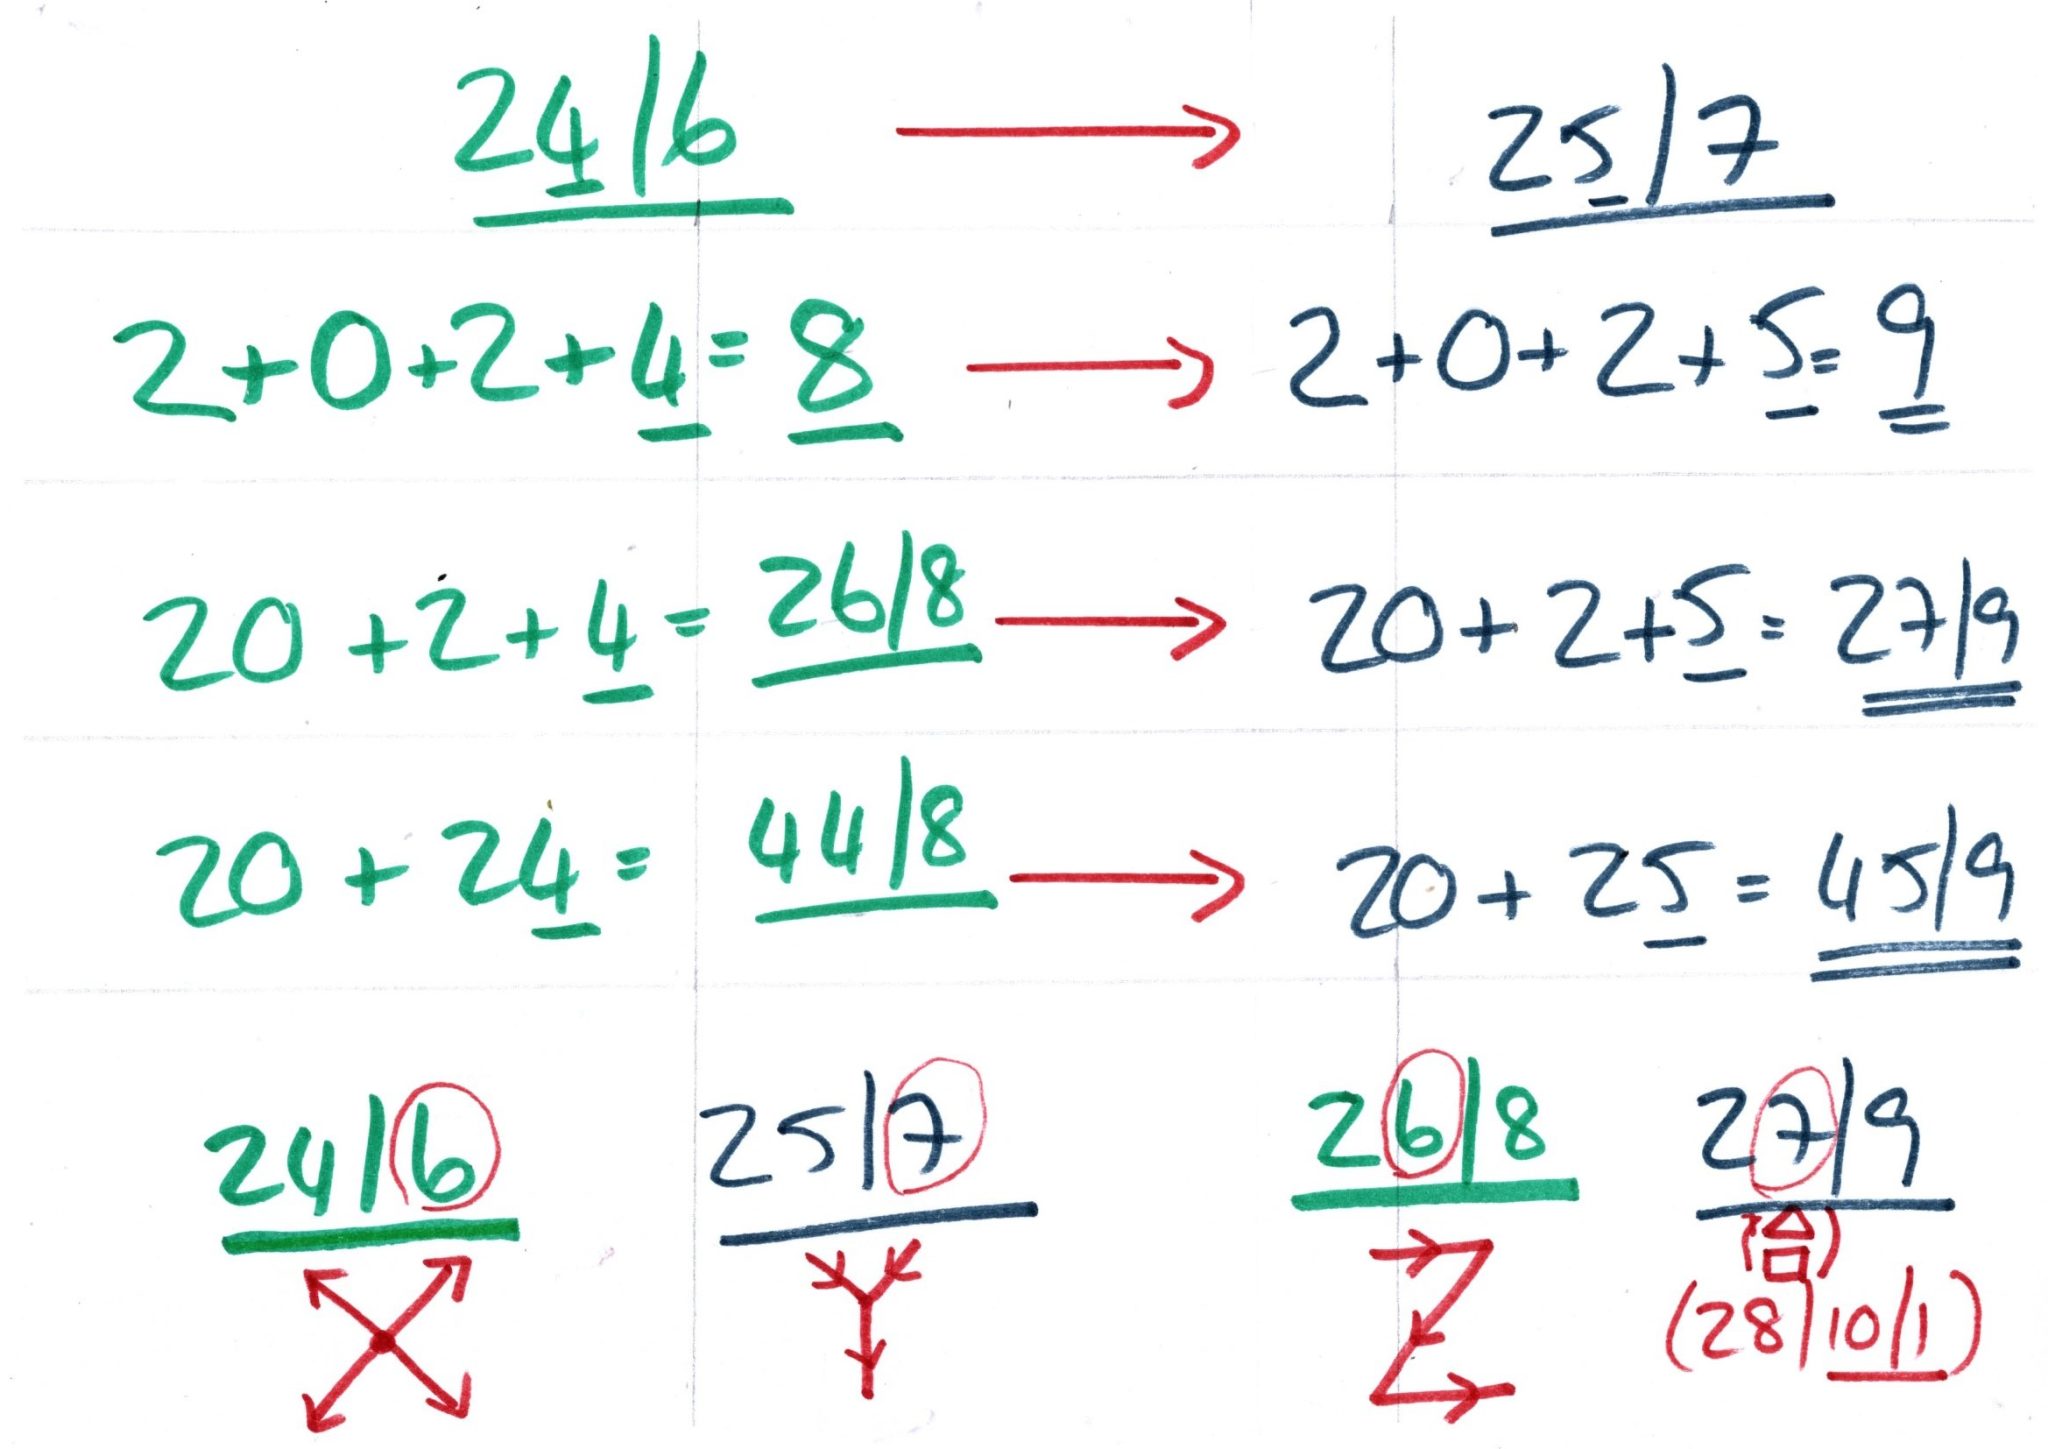 24/6 → 25/7
2+0+2+4=8 → 2+0+2+5=9
20+2+4=26/8 → 20+2+5=27/9
20+24=44/8 → 20+25=45/9
24/6 25/7 26/8 27/9
(28/10/1)